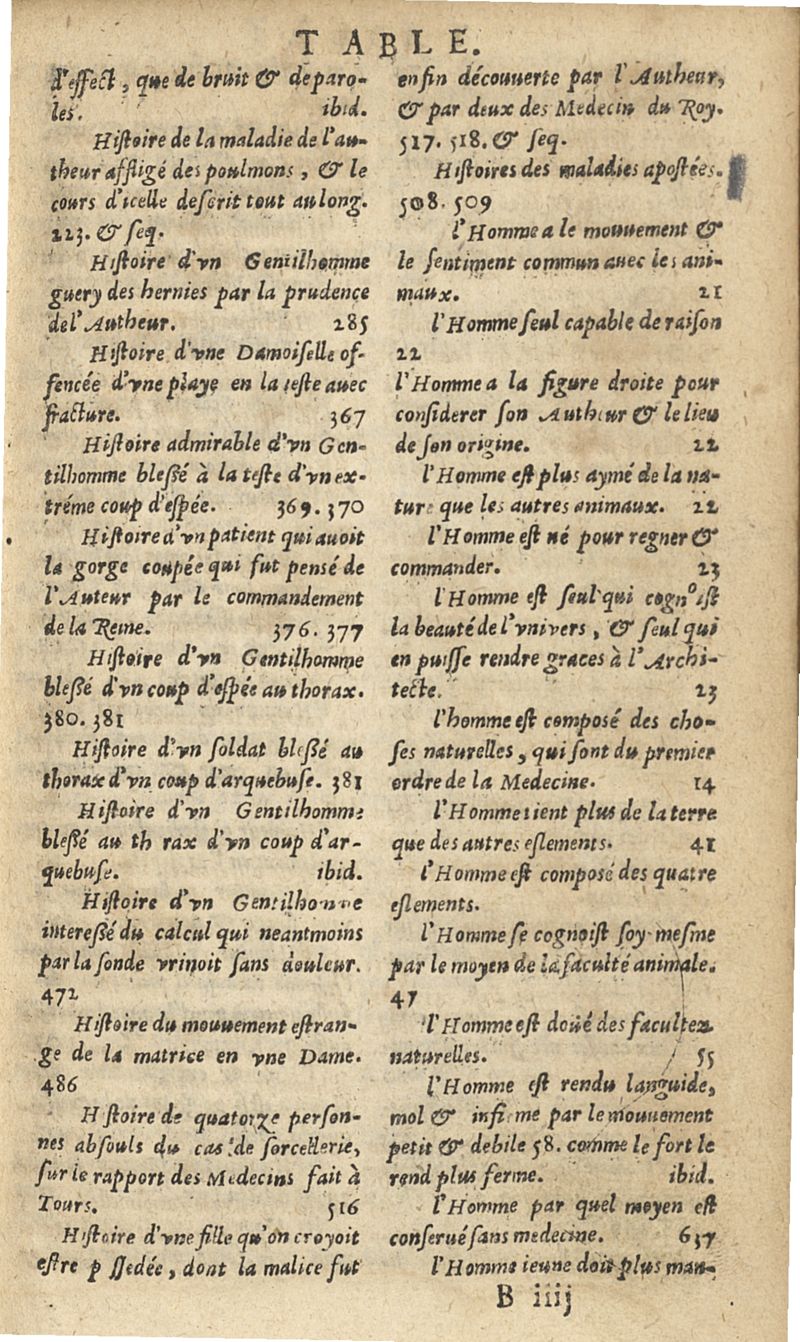 TABLE.
d'effect, que de bruit & deparo-
les. ibid.
Histoire de la maladie de l'au-
theur affligé des poulmons, & le
cours d'icelle descrit tout au long.
223. & seq.
Histoire d'vn Gentilhomme
guery des hernies par la prudence
del'Autheur. 285
Histoire d'vne Damoiselle of-
fencée d'vne playe en la teste auec
fracture. 367
Histoire admirable d'vn Gen-
tilhomme blessé à la teste d'vn ex-
tréme coup d'espée. 369. 370
Histoire d'vn patient qui auoit
la gorge coupée qui fut pensé de
l'Auteur par le commandement
de la Reine. 376. 377
Histoire d'vn Gentilhomme
blessé d'vn coup d'espée au thorax.
380. 381
Histoire d'vn soldat blessé au
thorax d'vn coup d'arquebuse. 381
Histoire d'vn Gentilhomme
blessé au th rax d'vn coup d'ar-
quebuse. ibid.
Histoire d'vn Gentilhomme
interessé du calcul qui neantmoins
par la sonde vrinoit sans douleur.
472
Histoire du mouuement estran-
ge de la matrice en vne Dame.
486
H stoire de quatorze person-
nes absouls du cas de sorcellerie,
sur le rapport des Medecins fait à
Tours. 516
Histoire d'vne fille qu'on croyoit
estre p ssedée, dont la malice fut
enfin découuerte par l'Autheur,
& par deux des Medecin du Roy.
517. 518. & seq.
Histoires des maladies apostées.
508. 509
l'Homme a le mouuement &
le sentiment commun auec les ani-
maux. 21
l'Homme seul capable de raison
22
l'Homme a la figure droite pour
considerer son Autheur & le lieu
de son origine. 22
l'Homme est plus aymé de la na-
ture que les autres animaux. 22
l'Homme est né pour regner &
commander. 23
l'Homme est seul qui cognoist
la beauté de l'vnivers, & seul qui
en puisse rendre graces à l'Archi-
tecte. 23
l'homme est composé des cho-
ses naturelles, qui sont du premier
ordre de la Medecine. 14
l'Homme tient plus de la terre
que des autres eslements. 41
l'Homme est composé des quatre
eslements.
l'Homme se cognoist soy-mesme
par le moyen de la faculté animale.
47
l'Homme est doüé des facultez
naturelles. 55
l'Homme est rendu languide,
mol & infi me par le mouuement
petit & debile 58. comme le fort le
rend plus ferme. ibid.
l'Homme par quel moyen est
conserué sans medecine. 637
l'Homme ieune doit plus man-
B iiij